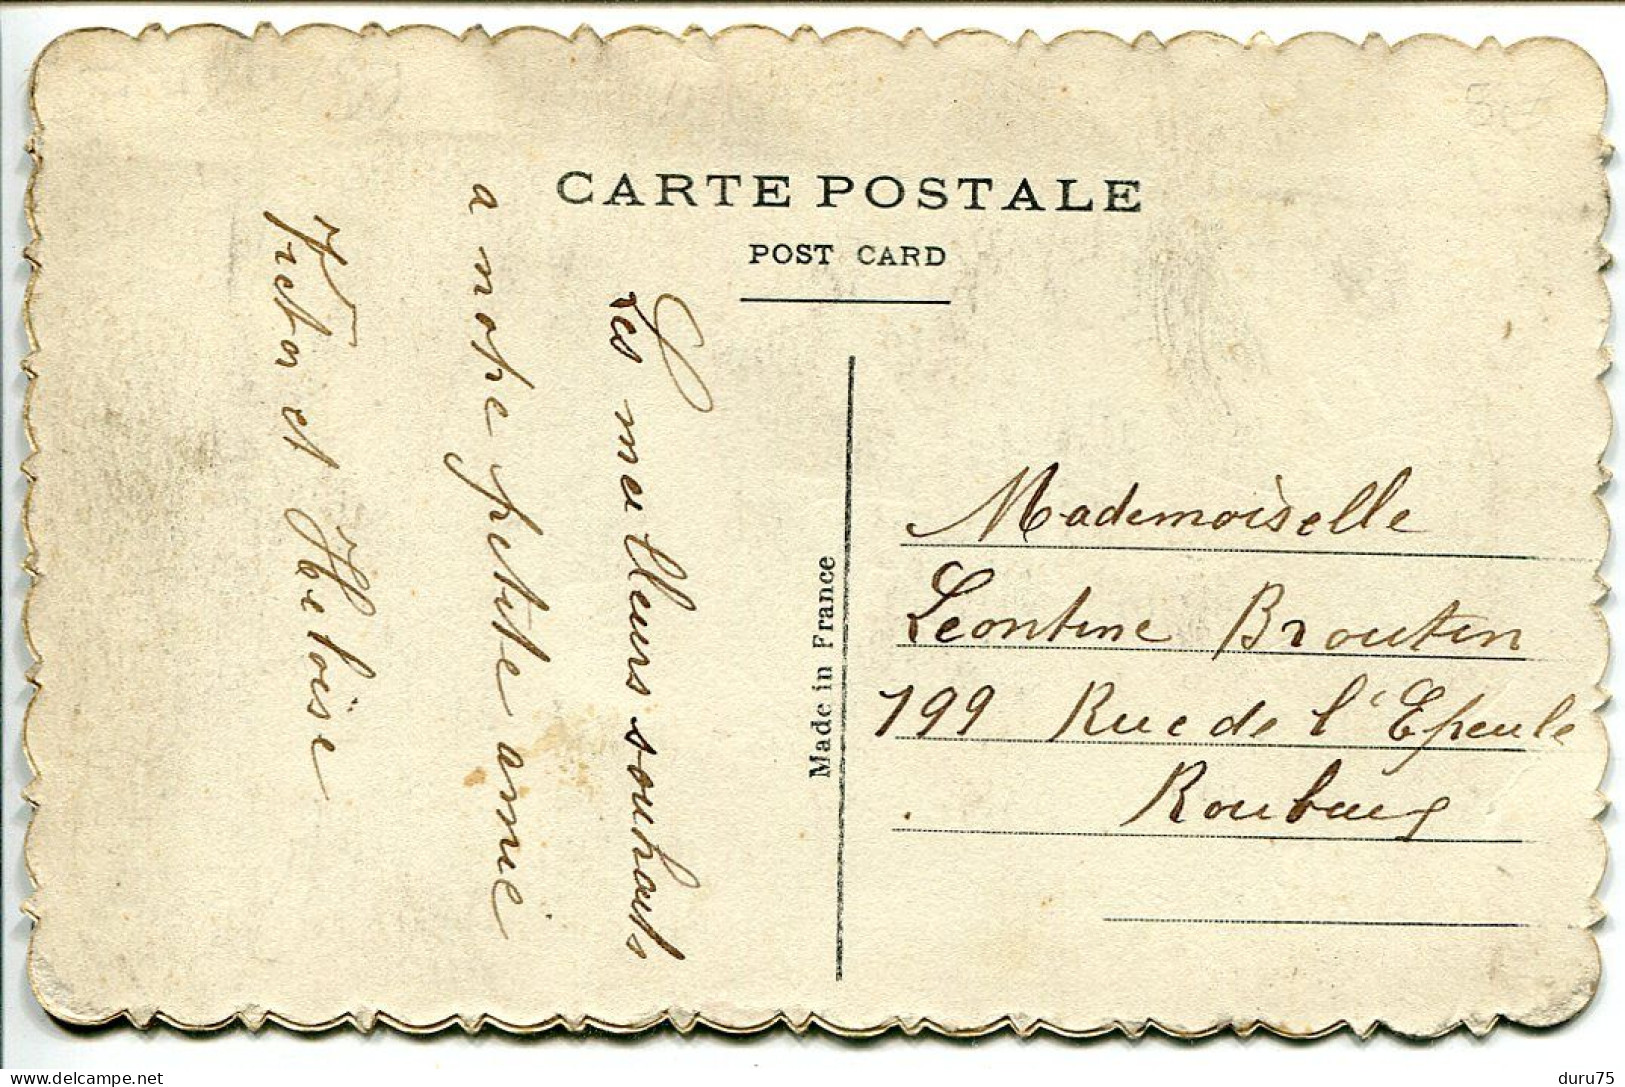 CARTE POSTALE
POST CARD
Les meilleurs souhaits
a notre petite amie
Victor et Heloïse
Made in France
Mademoiselle
Leontine Broutin
199 Rue de l'Epeule
Roubaix
delcampe.net
duru75